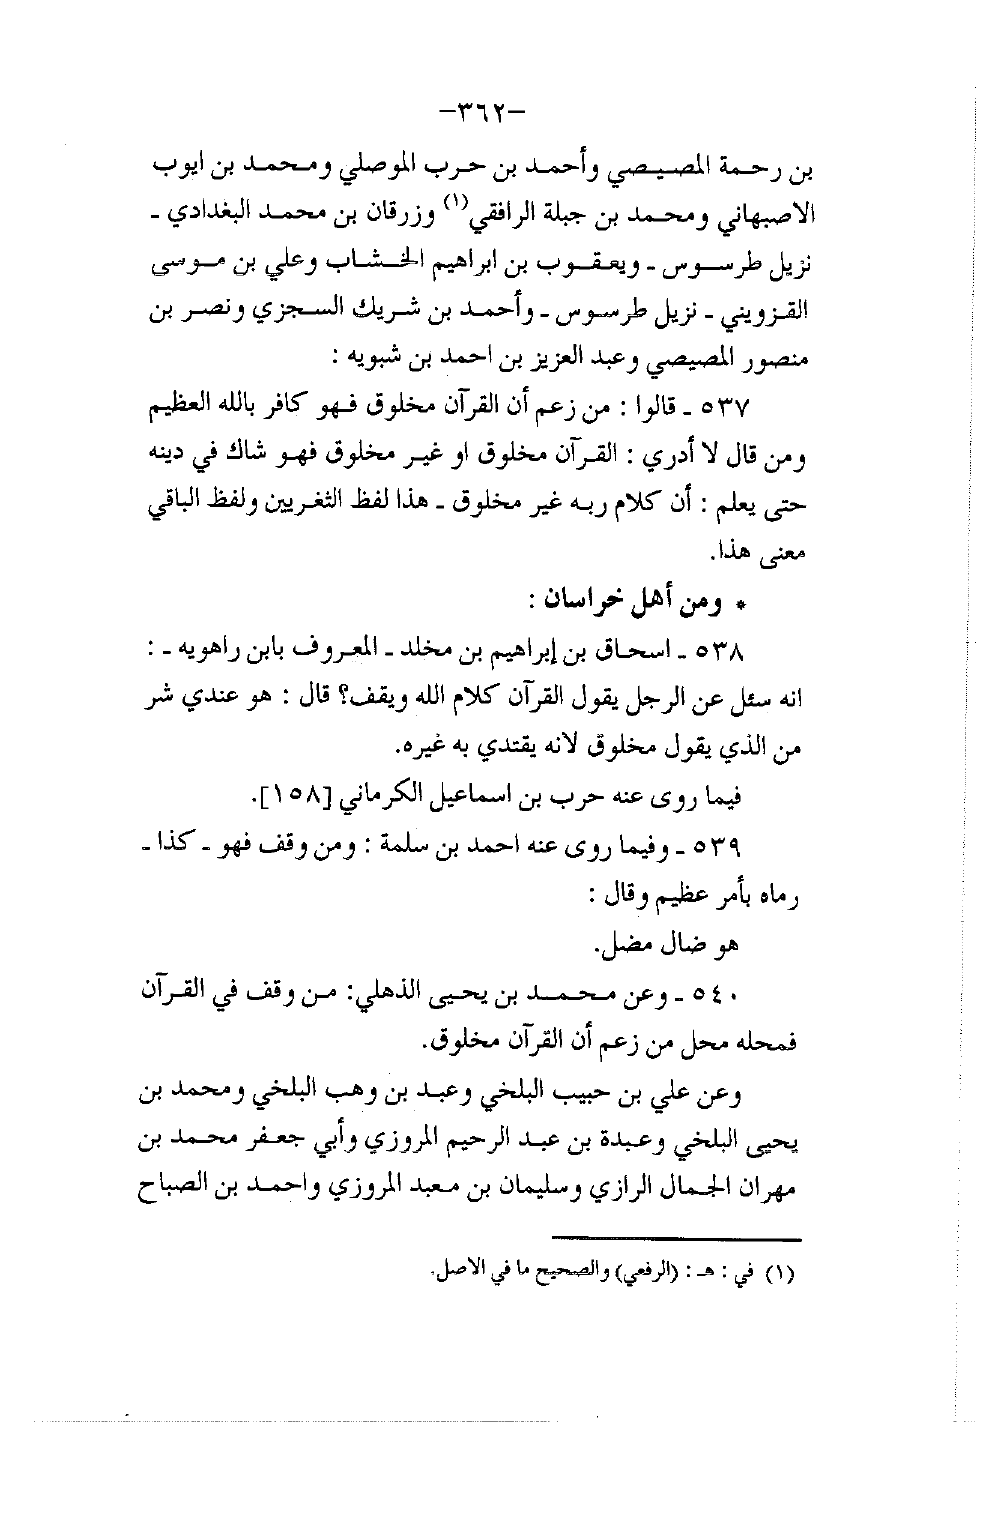 -٣٦٢-
بن رحمة المصيصي وأحمد بن حرب الموصلي ومحمد بن ايوب
الاصبهاني ومحمد بن جبلة الرافقي(١) وزرقان بن محمد البغدادي ـ
نزيل طرسوس ـ ويعقوب بن ابراهيم الخشاب وعلي بن موسى
القزويني ـ نزيل طرسوس ـ وأحمد بن شريك السجزي ونصر بن
منصور المصيصي وعبد العزيز بن احمد بن شبويه :
٥٣٧ ـ قالوا : من زعم أن القرآن مخلوق فهو كافر بالله العظيم
ومن قال لا أدري : القرآن مخلوق او غير مخلوق فهو شاك في دينه
حتى يعلم : أن كلام ربه غير مخلوق ـ هذا لفظ الثغريين ولفظ الباقي
معنى هذا.
* ومن أهل خراسان :
٥٣٨ ـ اسحاق بن إبراهيم بن مخلد ـ المعروف بابن راهويه ـ :
انه سئل عن الرجل يقول القرآن كلام الله ويقف؟ قال : هو عندي شر
من الذي يقول مخلوق لانه يقتدي به غيره.
فيما روى عنه حرب بن اسماعيل الكرماني [١٥٨].
٥٣٩ ـ وفيما روى عنه احمد بن سلمة : ومن وقف فهو ـ كذا ـ
رماه بأمر عظيم وقال :
هو ضال مضل.
٥٤٠ ـ وعن محمد بن يحيى الذهلي: من وقف في القرآن
فمحله محل من زعم أن القرآن مخلوق.
وعن علي بن حبيب البلخي وعبد بن وهب البلخي ومحمد بن
يحيى البلخي وعبدة بن عبد الرحيم المروزي وأبي جعفر محمد بن
مهران الجمال الرازي وسليمان بن معبد المروزي واحمد بن الصباح
(١) في : هـ : (الرفعي) والصحيح ما في الاصل.